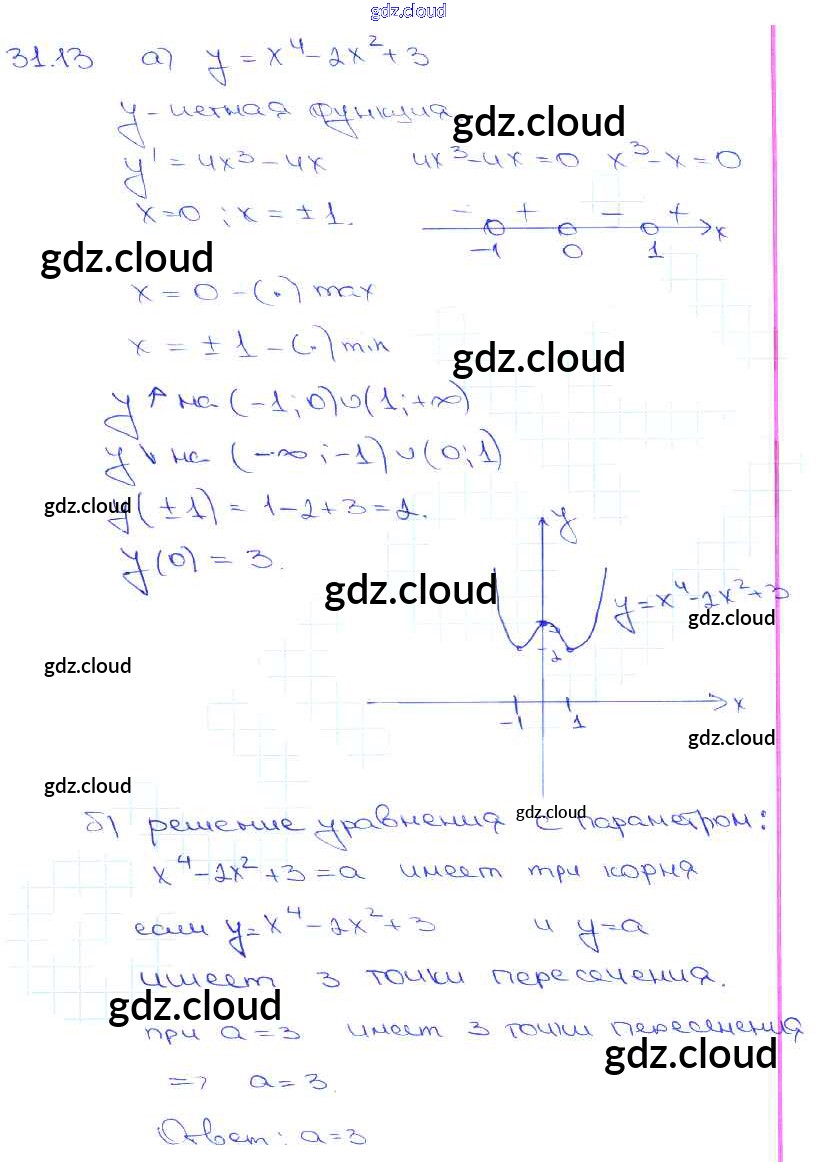 gdz.cloud
31.13 а) y = x⁴ - 2x² + 3
y - четная функция
gdz.cloud
y' = 4x³ - 4x 4x³ - 4x = 0 x³ - x = 0
x = 0 ; x = ± 1.
- + - + x
-1 0 1
gdz.cloud
x = 0 - (.) max
x = ± 1 - (.) min
gdz.cloud
y ↑ на (-1; 0) ∪ (1; +∞)
y ↓ на (-∞; -1) ∪ (0; 1)
gdz.cloud
y(±1) = 1 - 2 + 3 = 2.
y(0) = 3.
gdz.cloud
y
y = x⁴ - 2x² + 3
gdz.cloud
3
2
gdz.cloud
-1 1 x
gdz.cloud
gdz.cloud
gdz.cloud
б) решение уравнения с параметром:
x⁴ - 2x² + 3 = a имеет три корня
если y = x⁴ - 2x² + 3 и y = a
имеет 3 точки пересечения.
gdz.cloud
при a = 3 имеет 3 точки пересечения
gdz.cloud
=> a = 3.
Ответ: a = 3